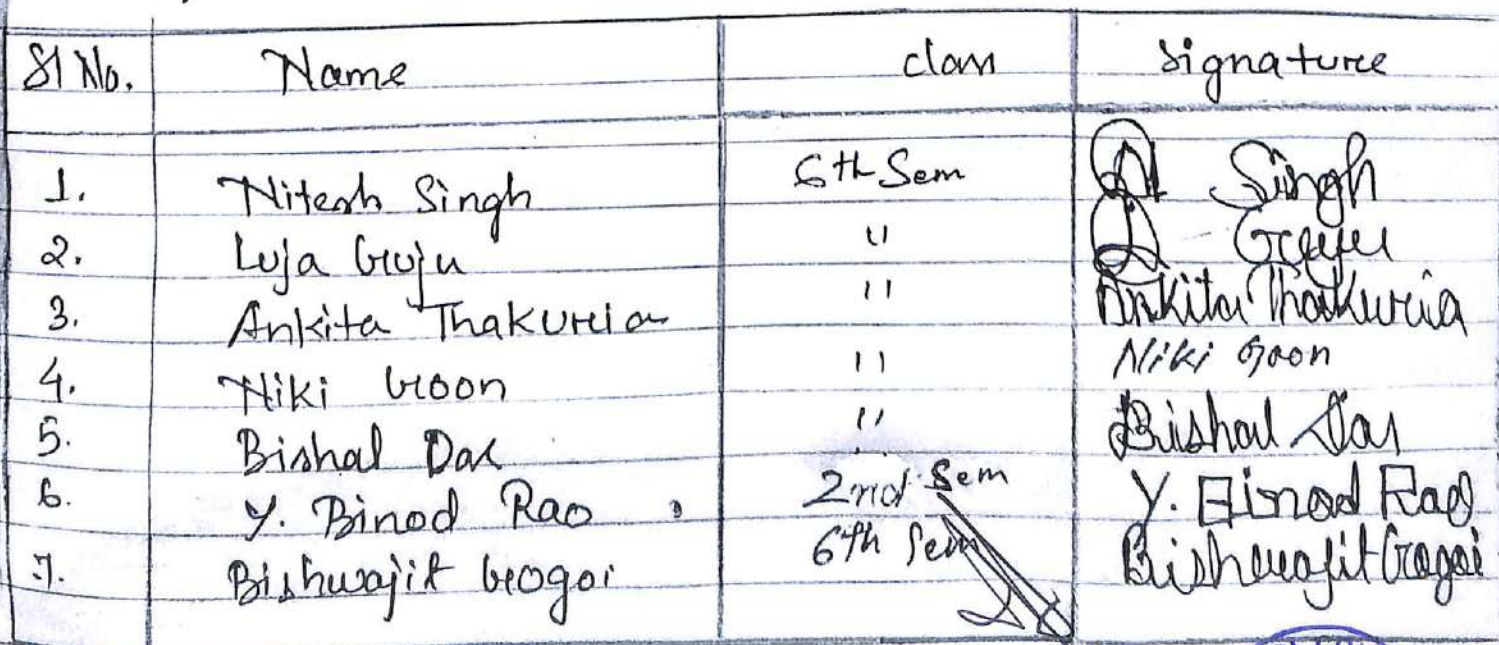 Sl No. Name Class Signature
1. Nitesh Singh 6th Sem N Singh
2. Luja Guju " L Guju
3. Ankita Thakuria " Ankita Thakuria
4. Niki Goon " Niki Goon
5. Bishal Das " Bishal Das
6. Y. Binod Rao 2nd Sem Y. Binod Rao
7. Bishwajit Gogoi 6th Sem Bishwajit Gogoi